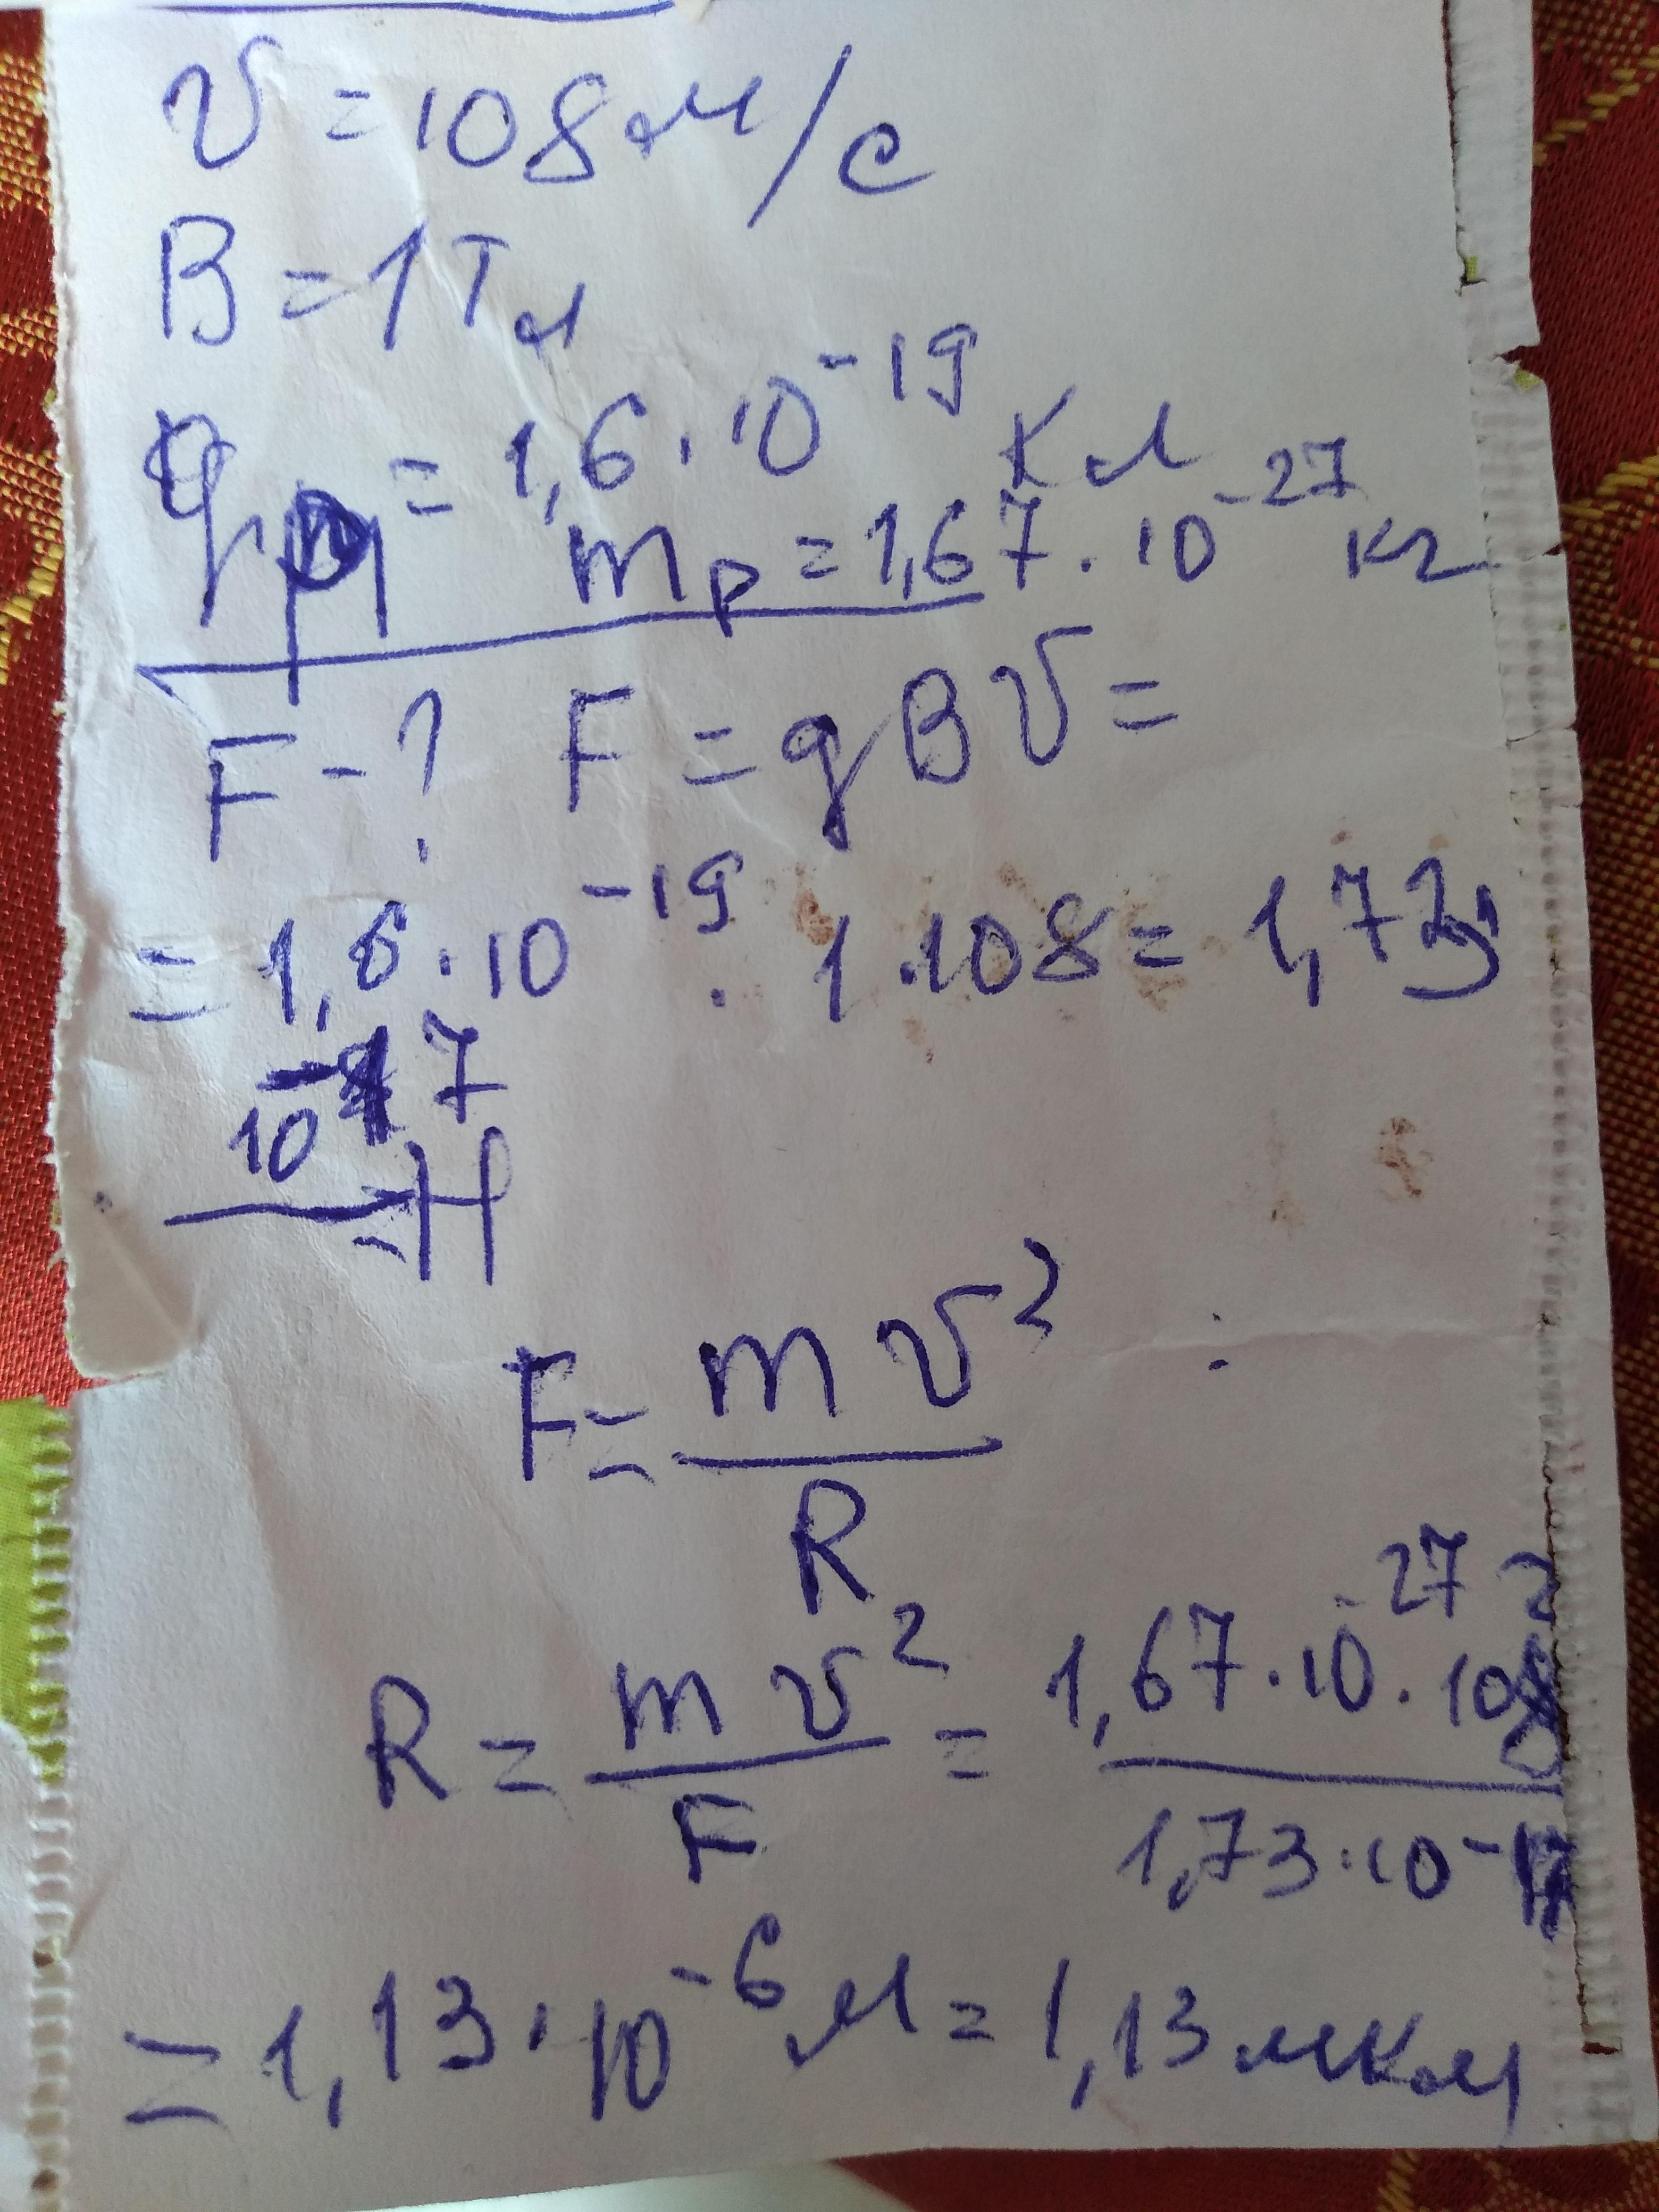 v = 108 м/с
B = 1 Тл
q = 1,6 · 10⁻¹⁹ Кл
m_p = 1,67 · 10⁻²⁷ кг
F - ? F = qBv =
= 1,6 · 10⁻¹⁹ · 1 · 108 = 1,73 ·
10⁻¹⁷ Н
F = mv²/R
R = mv²/F = 1,67 · 10⁻²⁷ · 108²/1,73 · 10⁻¹⁷
= 1,13 · 10⁻⁶ м = 1,13 мкм